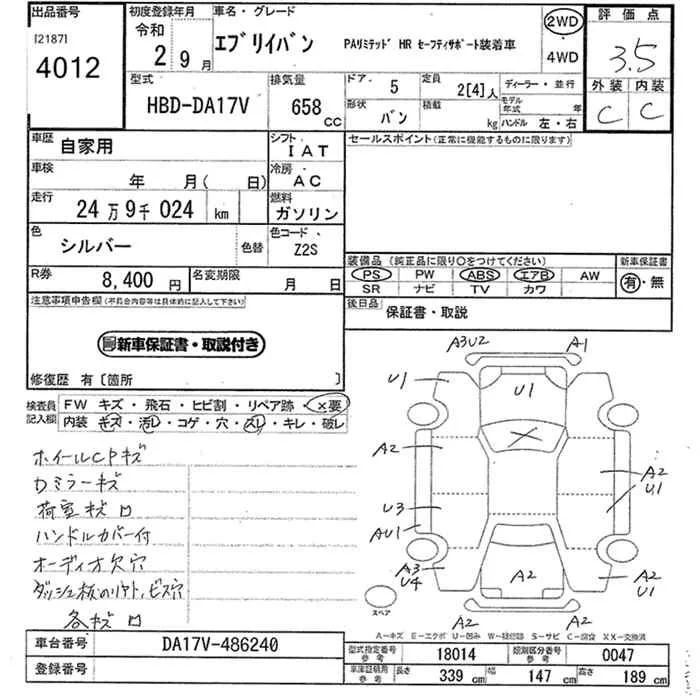 出品番号
[2187]
4012
初度登録年月
令和
2 9月
車名・グレード
エブリイバン PAリミテッド HR セーフティサポート装着車
2WD
・
4WD
評価点
3.5
外装 内装
C C
型式
HBD-DA17V
排気量
658 CC
ドア. 5
定員 2[4]人
ディーラー・並行
形状 バン
積載 kg
モデル年式 年
ハンドル 左・右
車歴 自家用
シフト. IAT
セールスポイント(正常に機能するものに限ります)
車検 年 月( 日)
冷房. AC
走行 24万9千024 km
燃料 ガソリン
色 シルバー 色替
色コード. Z2S
装備品 (純正品に限り○をつけてください)
新車保証書
PS PW ABS エアB AW
有・無
SR ナビ TV カワ
R券 8,400円
名変期限 月 日
後日品 保証書・取説
注意事項申告欄(不具合内容等は具体的に記入して下さい)
新車保証書・取説付き
修復歴 有〔箇所 〕
検査員記入欄
FW キズ・飛石・ヒビ割・リペア跡・×要
内装 キズ・汚レ・コゲ・穴・スレ・キレ・破レ
ホイールCPキズ
カミラーキズ
荷室キズロ
ハンドルカバー付
オーディオ欠穴
ビス穴
各キズロ
A3U2 A1
U1 U1
A2 A2
U1
U3
AU1
A3
U4
A2
A2
U1
A2 A2
スペア
A-キズ E-エクボ U-凹み W-補修跡 S-サビ C-腐食 XX-交換済
車台番号 DA17V-486240
登録番号
型式指定番号 参考 18014
類別区分番号 参考 0047
車庫証明用 参考 長さ 339 cm 幅 147 cm 高さ 189 cm